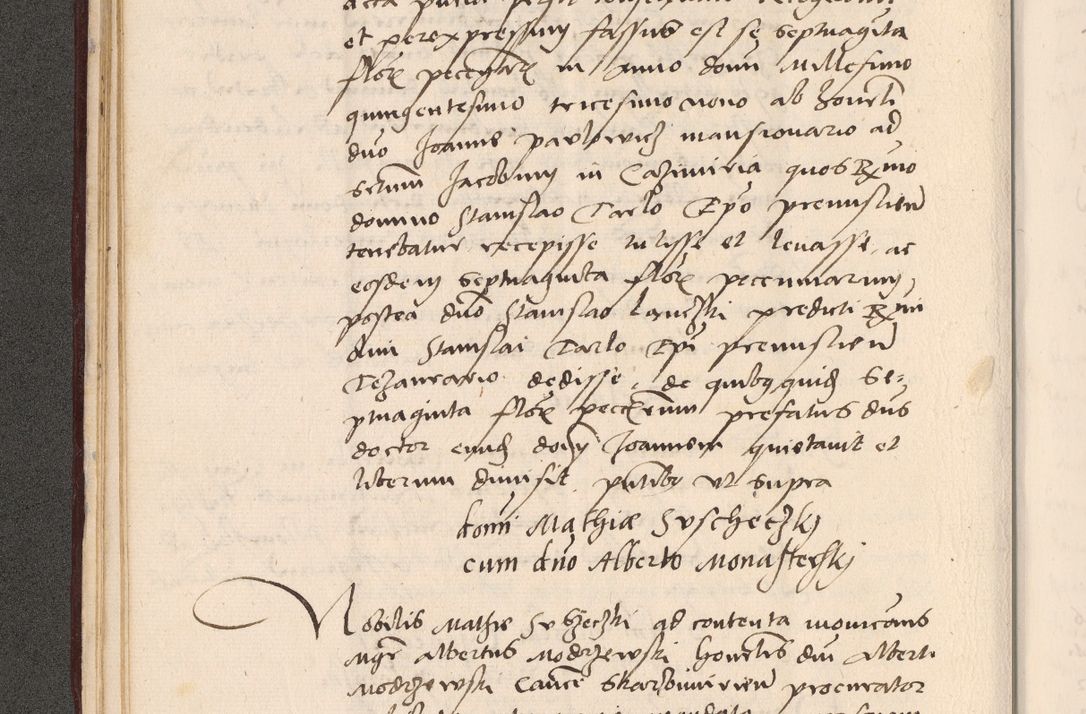 et per expressum fassus est se septuagita
flor pecuniar in anno domini Millesimo
quingentesimo tricesimo nono ab honesti
duo Joanne pavlowicz mansionario ad
sctum Jacobum in Cazimiria quos Rmo
domino Stanislao Tarlo Epo premislien
tenebatur recepisse tulisse et levasse, ac
eosdem septuaginta flor pecuniarum,
postea duo Stanislao predicti Rmi
dni Stanislai Tarlo Epi premislien
Tezaurario dedisse, de quibq quid Se-
ptuaginta flor prefatus dns
doctor eund dom Joannem quietavit et
liberum dimisit, pntibq ut supra
domi Mathiæ Suscheczkj
cum duo Alberto Monasterskj
Nobilis Mathie Suszeczki ad contenta monicionis
Mgr Albertus Modrzewski honestis dni Alberti
Modrzewski Canc Skarbimirien procurator